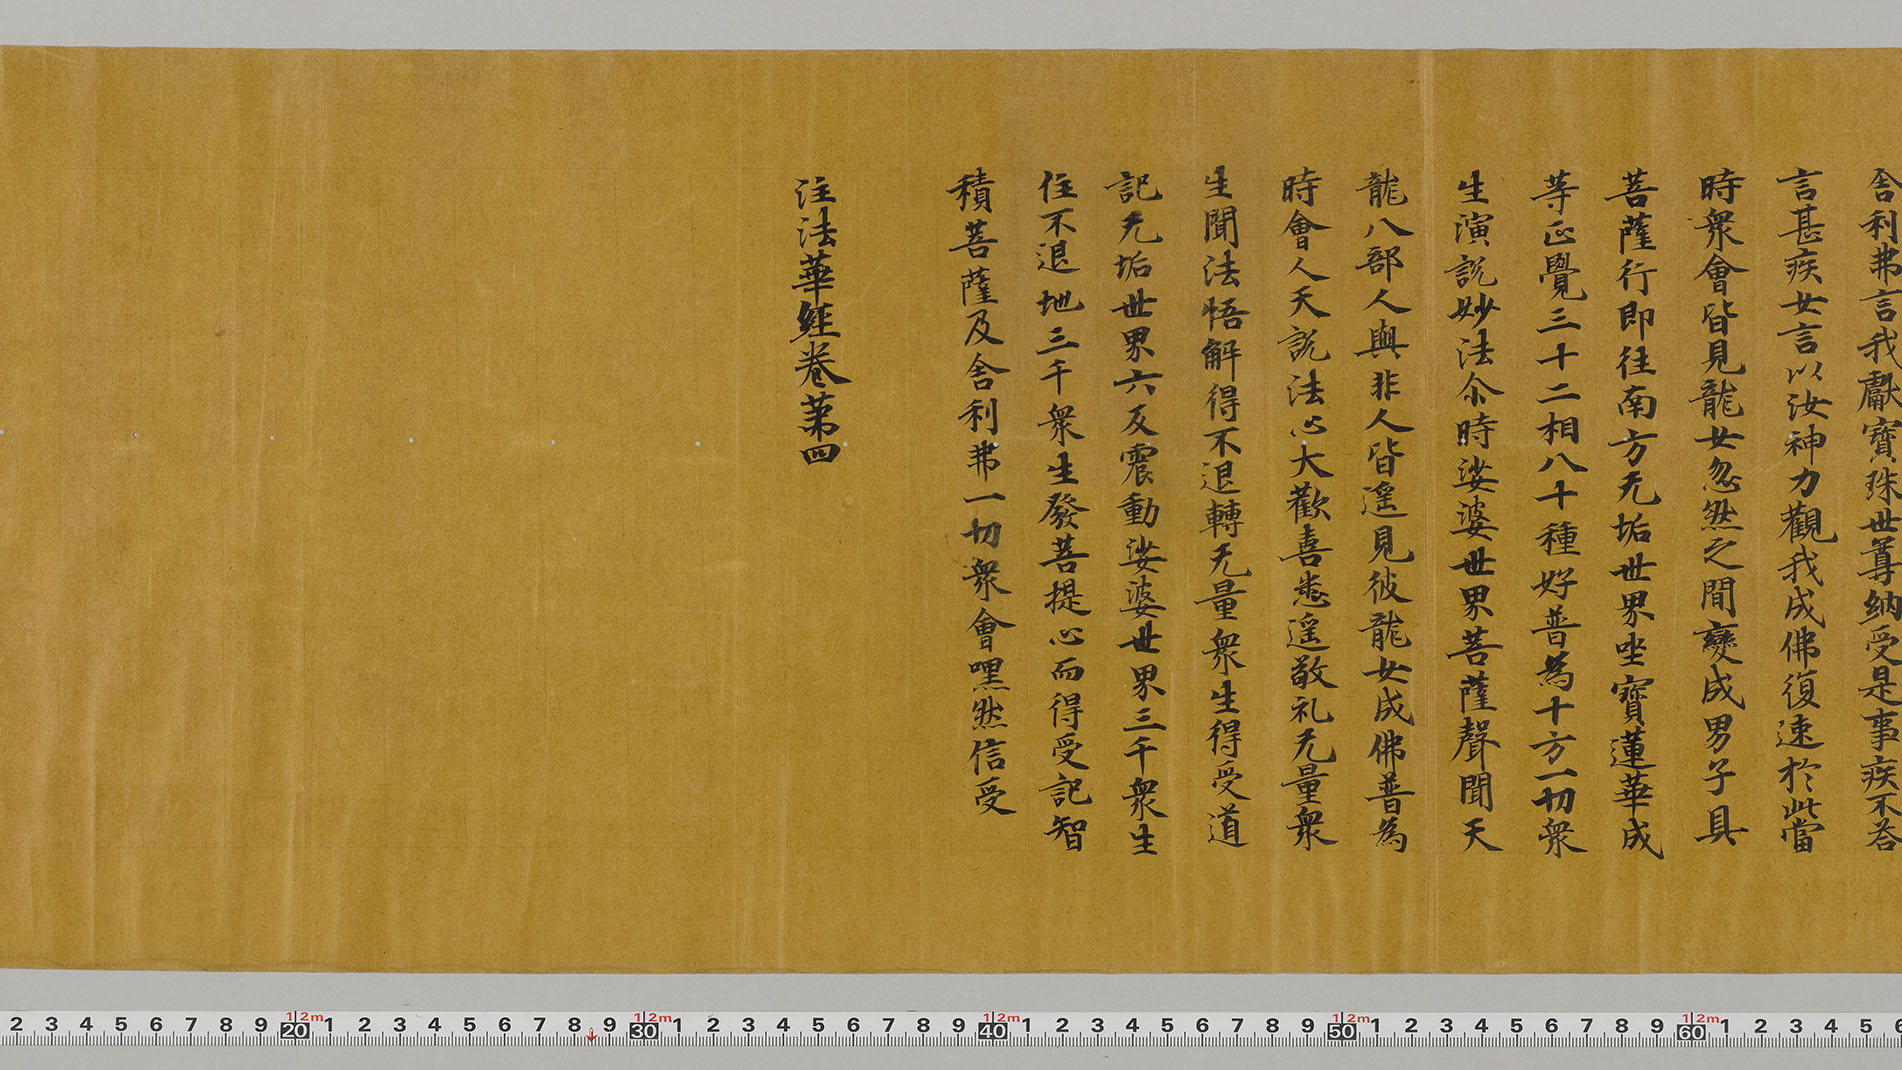 舎利弗言我獻寳珠世尊納受是事疾不荅
言甚疾女言以汝神力觀我成佛復速於此當
時衆會皆見龍女忽然之間變成男子具
菩薩行即往南方无垢世界坐寳蓮華成
等正覺三十二相八十種好普為十方一切衆
生演説妙法尒時娑婆世界菩薩聲聞天
龍八部人與非人皆遥見彼龍女成佛普為
時會人天説法心大歡喜悉遥敬礼无量衆
生聞法悟解得不退轉无量衆生得受道
記无垢世界六反震動娑婆世界三千衆生
住不退地三千衆生發菩提心而得受記智
積菩薩及舎利弗一切衆會嘿然信受
注法華経巻第四
2 3 4 5 6 7 8 9 20 1 2 3 4 5 6 7 8 9 30 1 2 3 4 5 6 7 8 9 40 1 2 3 4 5 6 7 8 9 50 1 2 3 4 5 6 7 8 9 60 1 2 3 4 5 6
12m 12m 12m 12m 12m